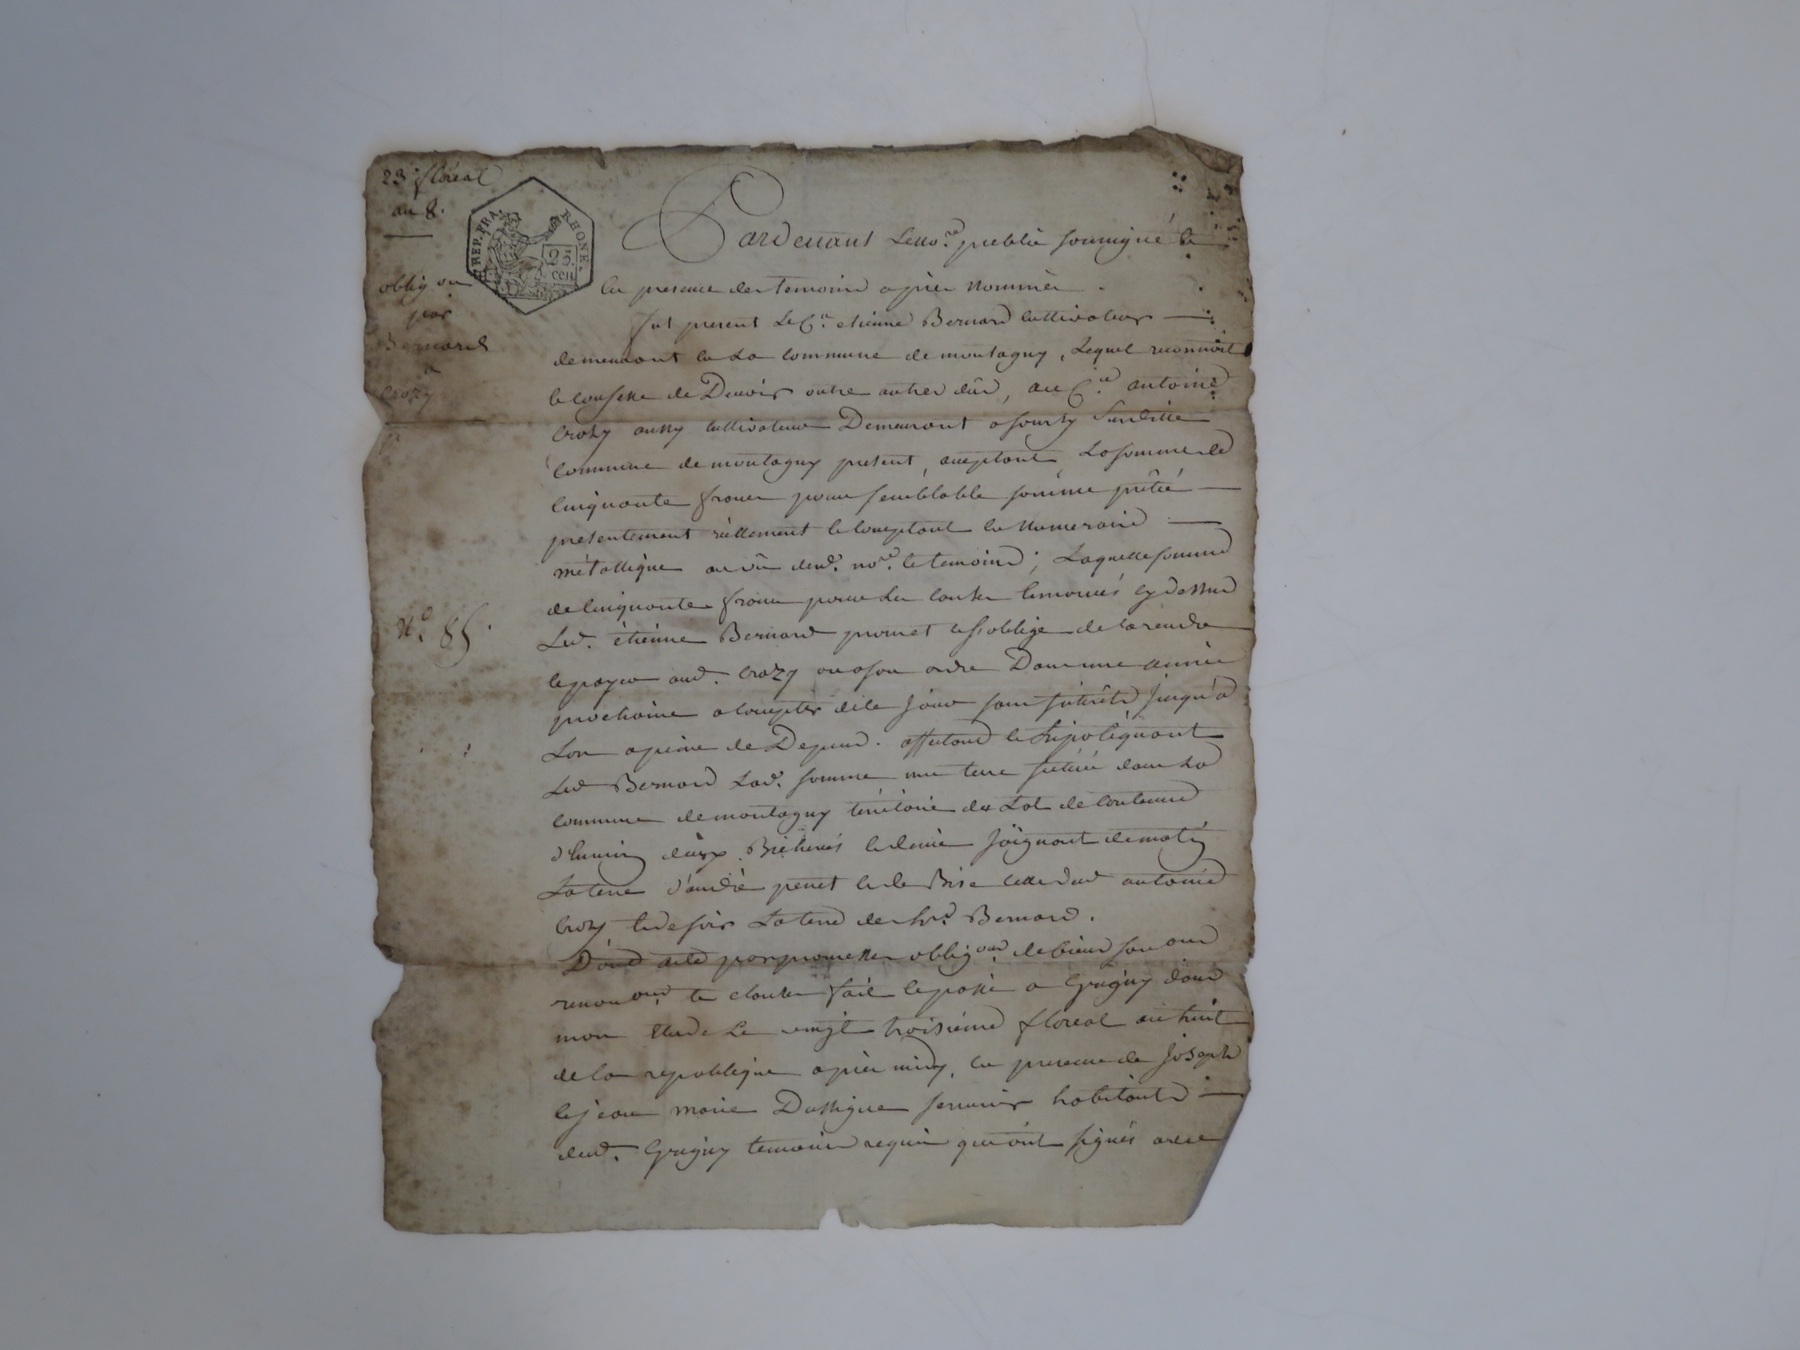 23 floréal
an 8.
REP. FRA.
RHONE.
25.
cen
oblig.on
par
Bernard
a
Crozy
N.o 85.
Pardevant Le no.re public soussigné &
en presence des temoins après nommés.
fut present Le C.en etienne Bernard cultivateur
demeurant en La commune de montagny, Lequel reconnoit
& confesse de Devoir outre autre dûe, au C.en antoine
Crozy aussy cultivateur Demeurant a sourzy Susditte
commune de montagny present, acceptant, La somme de
cinquante francs pour semblable somme prêtée
presentement réellement & comptant en numeraire
métallique au vû dud. no.re & temoins; Laquelle somme
de cinquante francs pour Les causes enoncées cy dessus
Led. étienne Bernard promet & s'oblige de La rendre
& payer aud. Crozy ou a son ordre Dans une année
prochaine a compter de ce jour sans intérêts jusqu'a
Lors a peine de Depend. affectant & hipotéquant
Led Bernard Lad. somme une terre sittuée dans La
commune de montagny térritoire du Lat de contenue
d'Environ deux Bicherées & demie joignant de matin
La terre d'andré penet & de Bise celle dud antoine
Crozy & de soir La terre de Bernard.
Dont acte par promesses oblig.ons de biens sou.ons
renon.ons & clauses fait & passé a Grigny dans
mon Etude Le vingt troisième floréal an huit
de la republique après midy, en presence de Joseph
& jean marie Dassigue serrurier habitants
dud. Grigny temoins requis qui ont signés avec